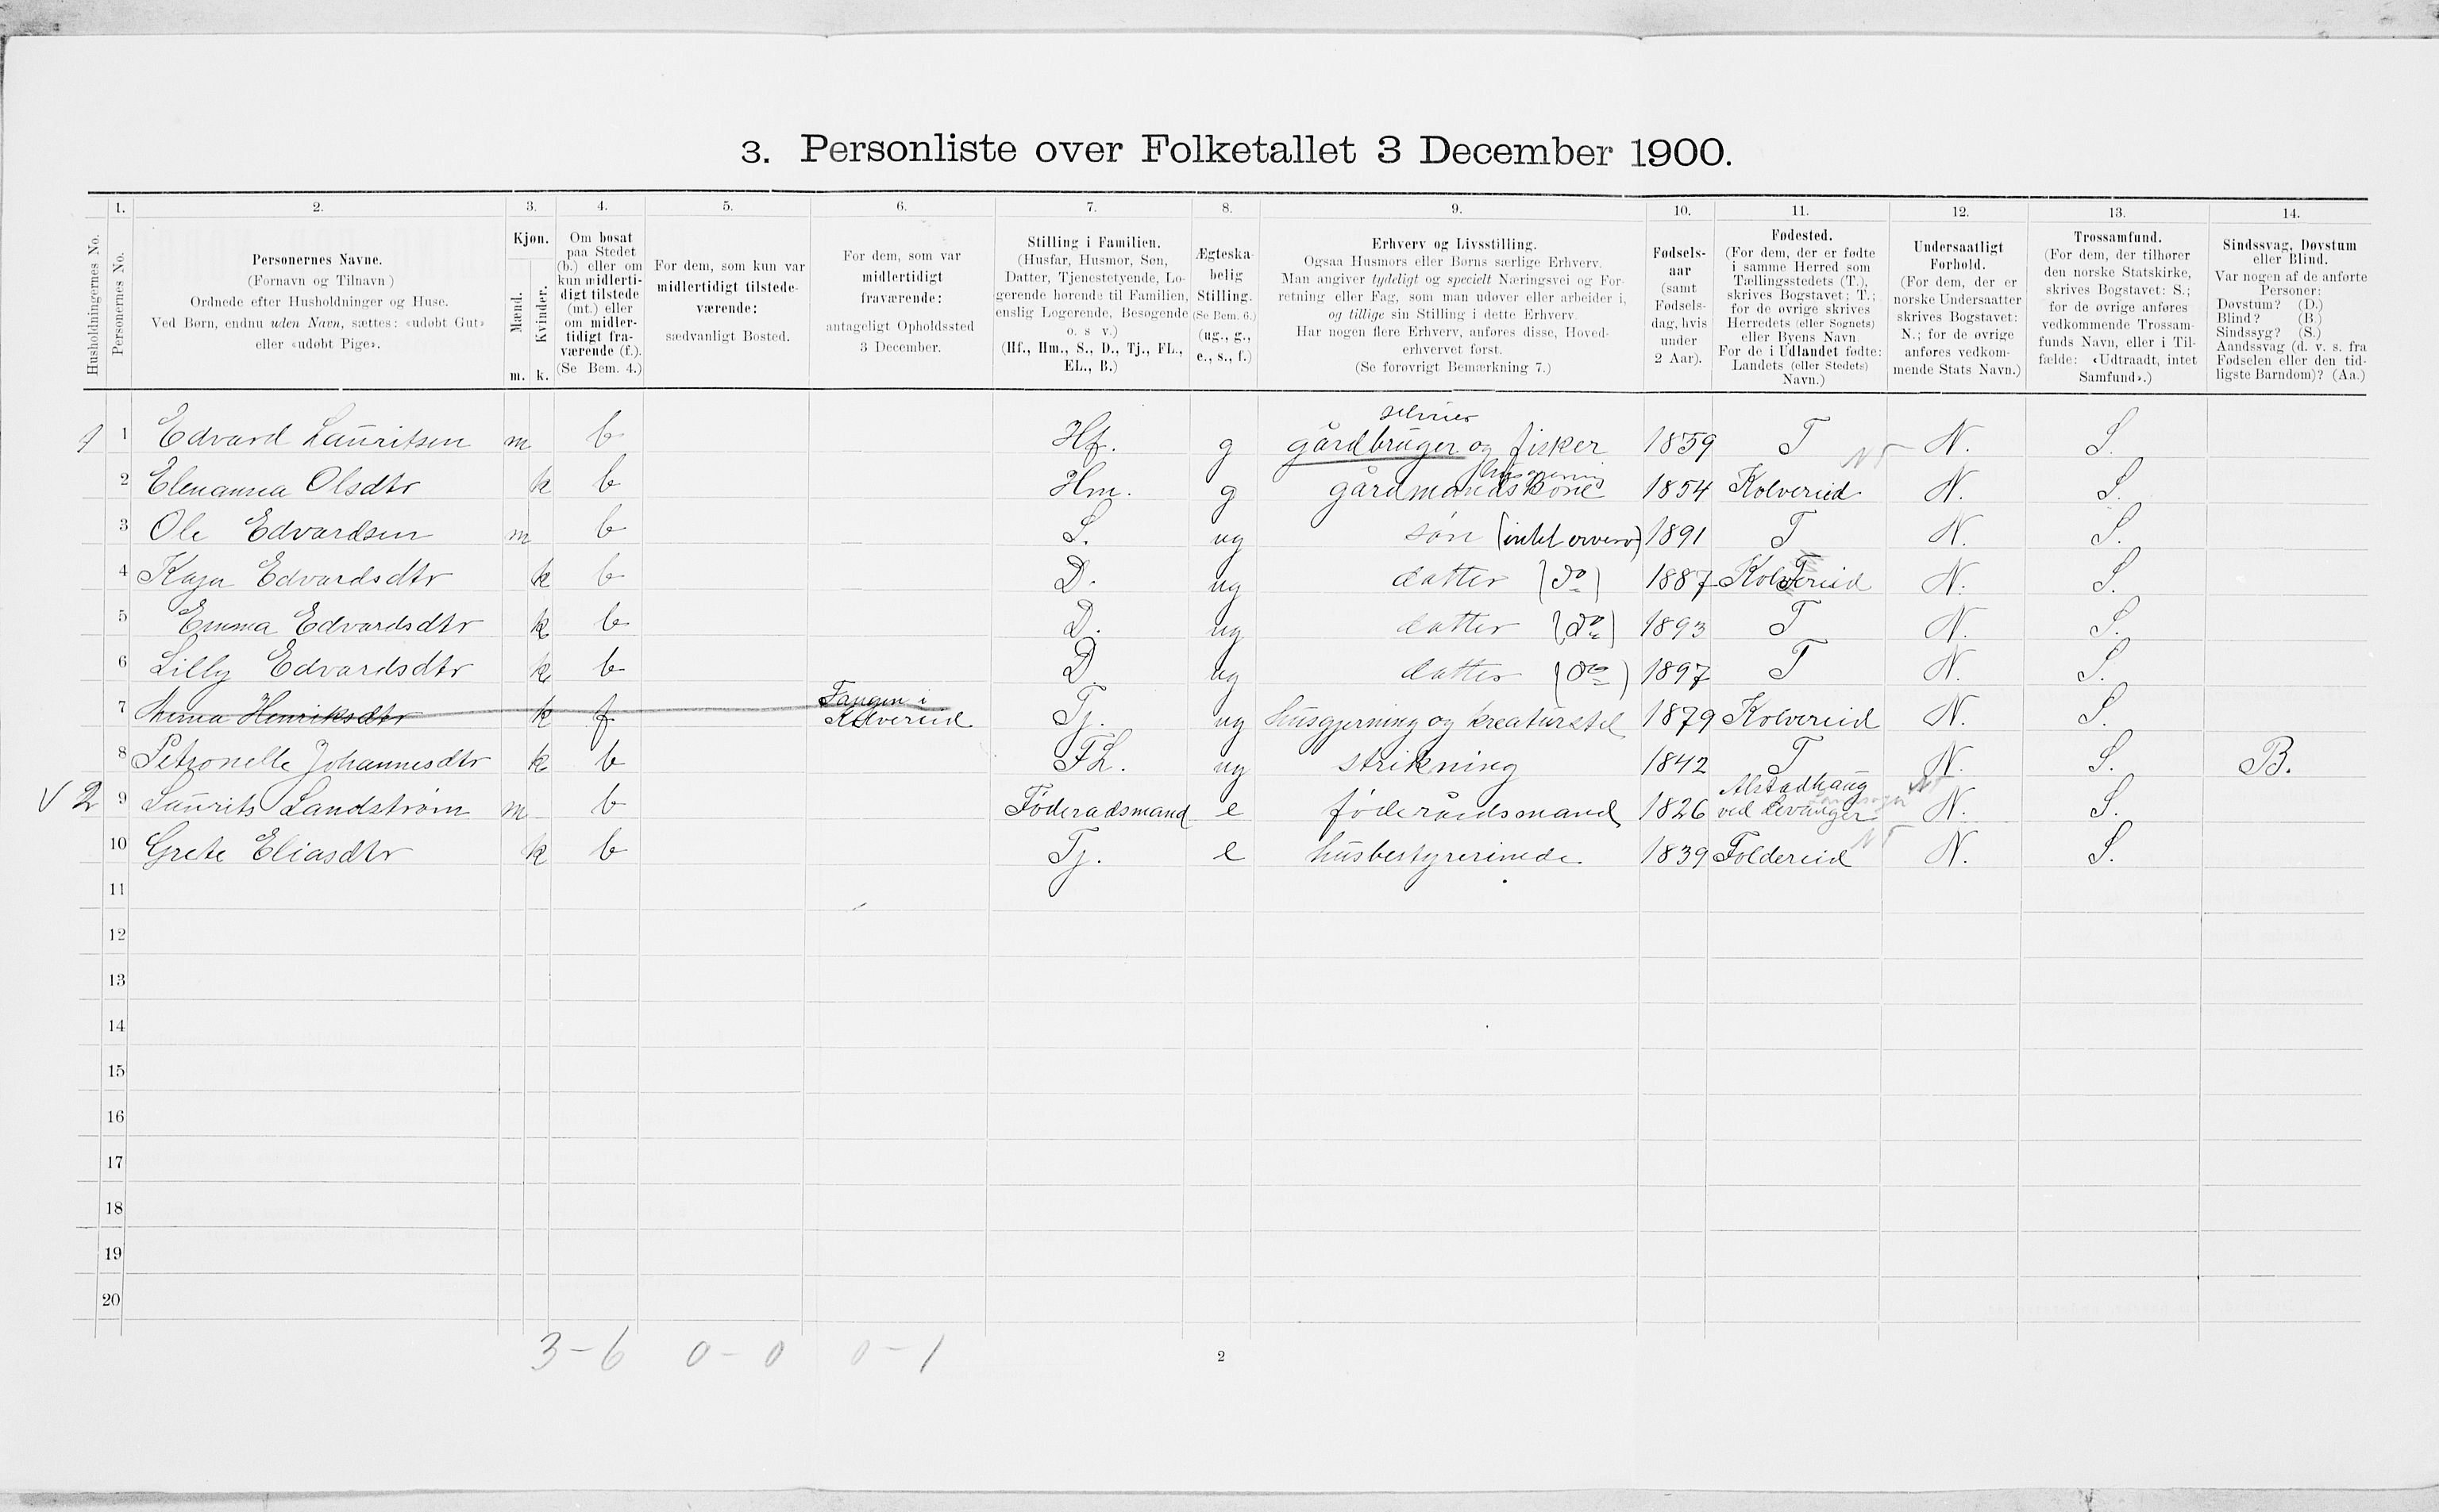 3. Personliste over Folketallet 3 December 1900.
1. 2. 3. 4. 5. 6. 7. 8. 9. 10. 11. 12. 13. 14.
Husholdningernes No.
Personernes No.
Personernes Navne.
(Fornavn og Tilnavn)
Ordnede efter Husholdninger og Huse.
Ved Børn, endnu uden Navn, sættes: «udøbt Gut»
eller «udøbt Pige».
Kjøn.
Mænd.
Kvinder.
m. k.
Om bosat
paa Stedet
(b.) eller om
kun midlerti-
digt tilstede
(mt.) eller
om midler-
tidigt fra-
værende (f.).
(Se Bem. 4.)
For dem, som kun var
midlertidigt tilstede-
værende:
sædvanligt Bosted.
For dem, som var
midlertidigt
fraværende:
antageligt Opholdssted
3 December.
Stilling i Familien.
(Husfar, Husmor, Søn,
Datter, Tjenestetyende, Lo-
gerende hørende til Familien,
enslig Logerende, Besøgende
o. s v.)
(Hf., Hm., S., D., Tj., FL.,
EL., B.)
Ægteska-
belig
Stilling.
(Se Bem. 6.)
(ug., g.,
e., s., f.)
Erhverv og Livsstilling.
Ogsaa Husmors eller Børns særlige Erhverv.
Man angiver tydeligt og specielt Næringsvei og For-
retning eller Fag, som man udøver eller arbeider i,
og tillige sin Stilling i dette Erhverv.
Har nogen flere Erhverv, anføres disse, Hoved-
erhvervet først.
(Se forøvrigt Bemærkning 7.)
Fødsels-
aar
(samt
Fødsels-
dag, hvis
under
2 Aar).
Fødested.
(For dem, der er fødte
i samme Herred som
Tællingsstedets (T.),
skrives Bogstavet: T.;
for de øvrige skrives
Herredets (eller Sognets)
eller Byens Navn.
For de i Udlandet fødte:
Landets (eller Stedets)
Navn.)
Undersaatligt
Forhold.
(For dem, der er
norske Undersaatter
skrives Bogstavet:
N.; for de øvrige
anføres vedkom-
mende Stats Navn.)
Trossamfund.
(For dem, der tilhører
den norske Statskirke,
skrives Bogstavet: S.;
for de øvrige anføres
vedkommende Trossam-
funds Navn, eller i Til-
fælde: «Udtraadt, intet
Samfund».)
Sindssvag, Døvstum
eller Blind.
Var nogen af de anførte
Personer:
Døvstum? (D.)
Blind? (B.)
Sindssyg? (S.)
Aandssvag (d. v. s. fra
Fødselen eller den tid-
ligste Barndom)? (Aa.)
selveier
1 1 Edvard Lauritsen m b Hf. g gårdbruger og fisker 1859 T N. S.
husgjerning NT
2 Elenanna Olsdtr k b Hm. g gårdmands kone 1854 Kolvereid N. S.
3 Ole Edvardsen m b S. ug søn (intet erverv) 1891 T N. S.
4 Kaja Edvardsdtr k b D. ug datter (do) 1887 Kolvereid T N. S.
5 Emma Edvardsdtr k b D. ug datter (do) 1893 T N. S.
6 Lilly Edvardsdtr k b D. ug datter (do) 1897 T N. S.
i
7 Henriksdtr k f Kolvereid Tj. ug husgjerning og kreaturstel 1879 Kolvereid N. S.
8 Petronelle Johannesdtr k b FL. ug strikning 1842 T N. S. B.
Alstadhaug NT
V 2 9 Laurits Landstrøm m b Føderadsmand e føderådsmand 1826 ved Levanger N. S.
NT
10 Grete Eliasdtr k b Tj. e husbestyrerinde 1839 Foldereid N. S.
11
12
13
14
15
16
17
18
19
20
3-6 0-0 0-1
2